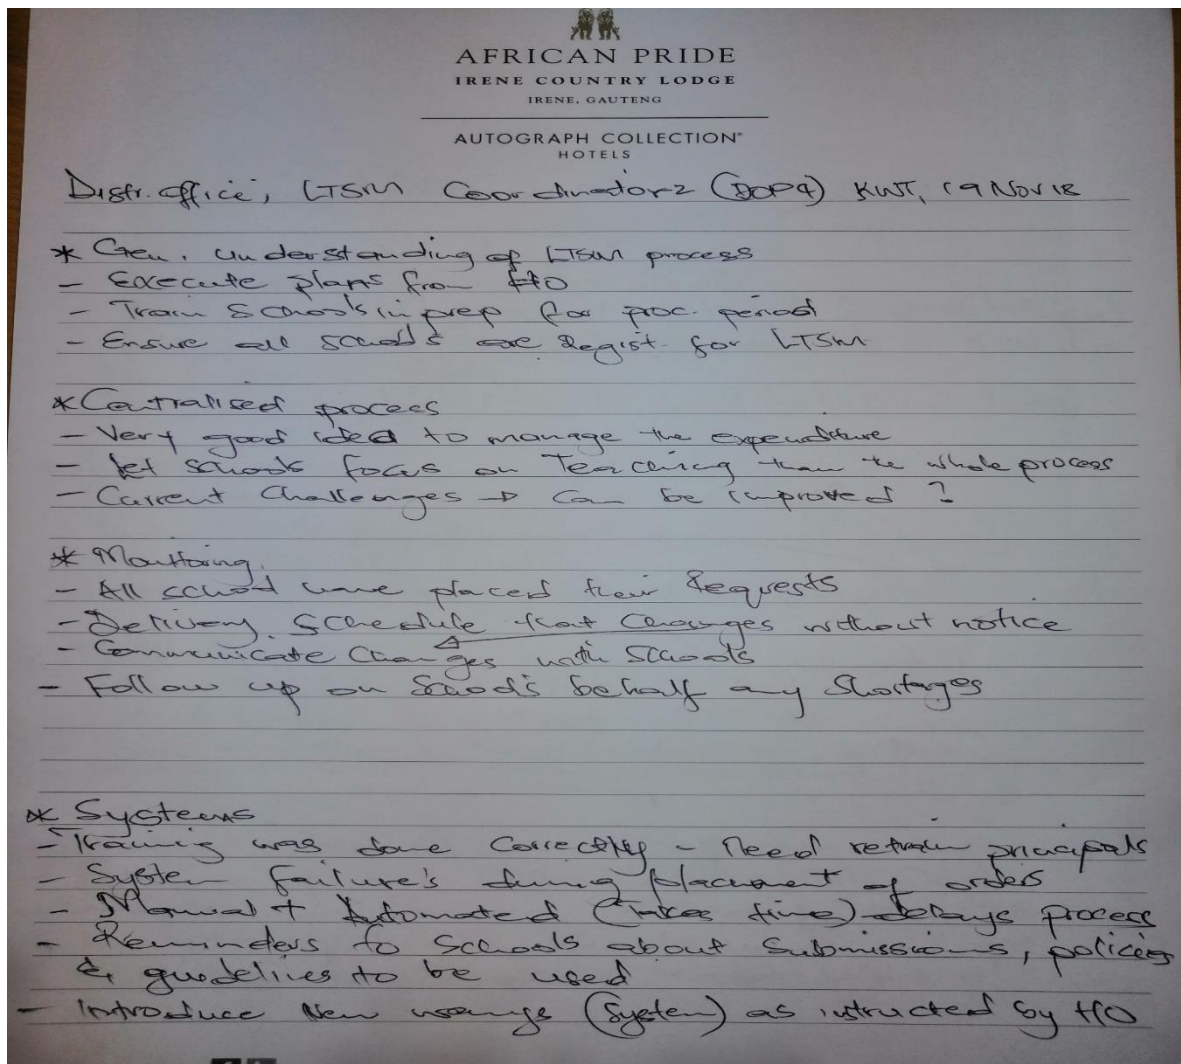 AFRICAN PRIDE
IRENE COUNTRY LODGE
IRENE, GAUTENG
AUTOGRAPH COLLECTION®
HOTELS
Distr. office, LTSM Coordinator 2 (DOP4) KWT, 19 Nov 18
* Gen. understanding of LTSM process
- Execute plans from HO
- Train Schools in prep for proc. period
- Ensure all schools are Regist. for LTSM
* Centralised process
- Very good idea to manage the expenditure
- let schools focus on Teaching than the whole process
- Current Challenges → Can be improved ?
* Monitoring
- All school have placed their Requests
- Delivery Schedule that Changes without notice
- Communicate Changes with Schools
- Follow up on School's behalf any Shortages
* Systems
- Training was done Correctly - Need retrain principals
- System failure's during placement of orders
- Manual + Automated (Takes time) - delays process
- Reminders to Schools about Submissions, policies
& guidelines to be used
- Introduce New (System) as intructed by HO